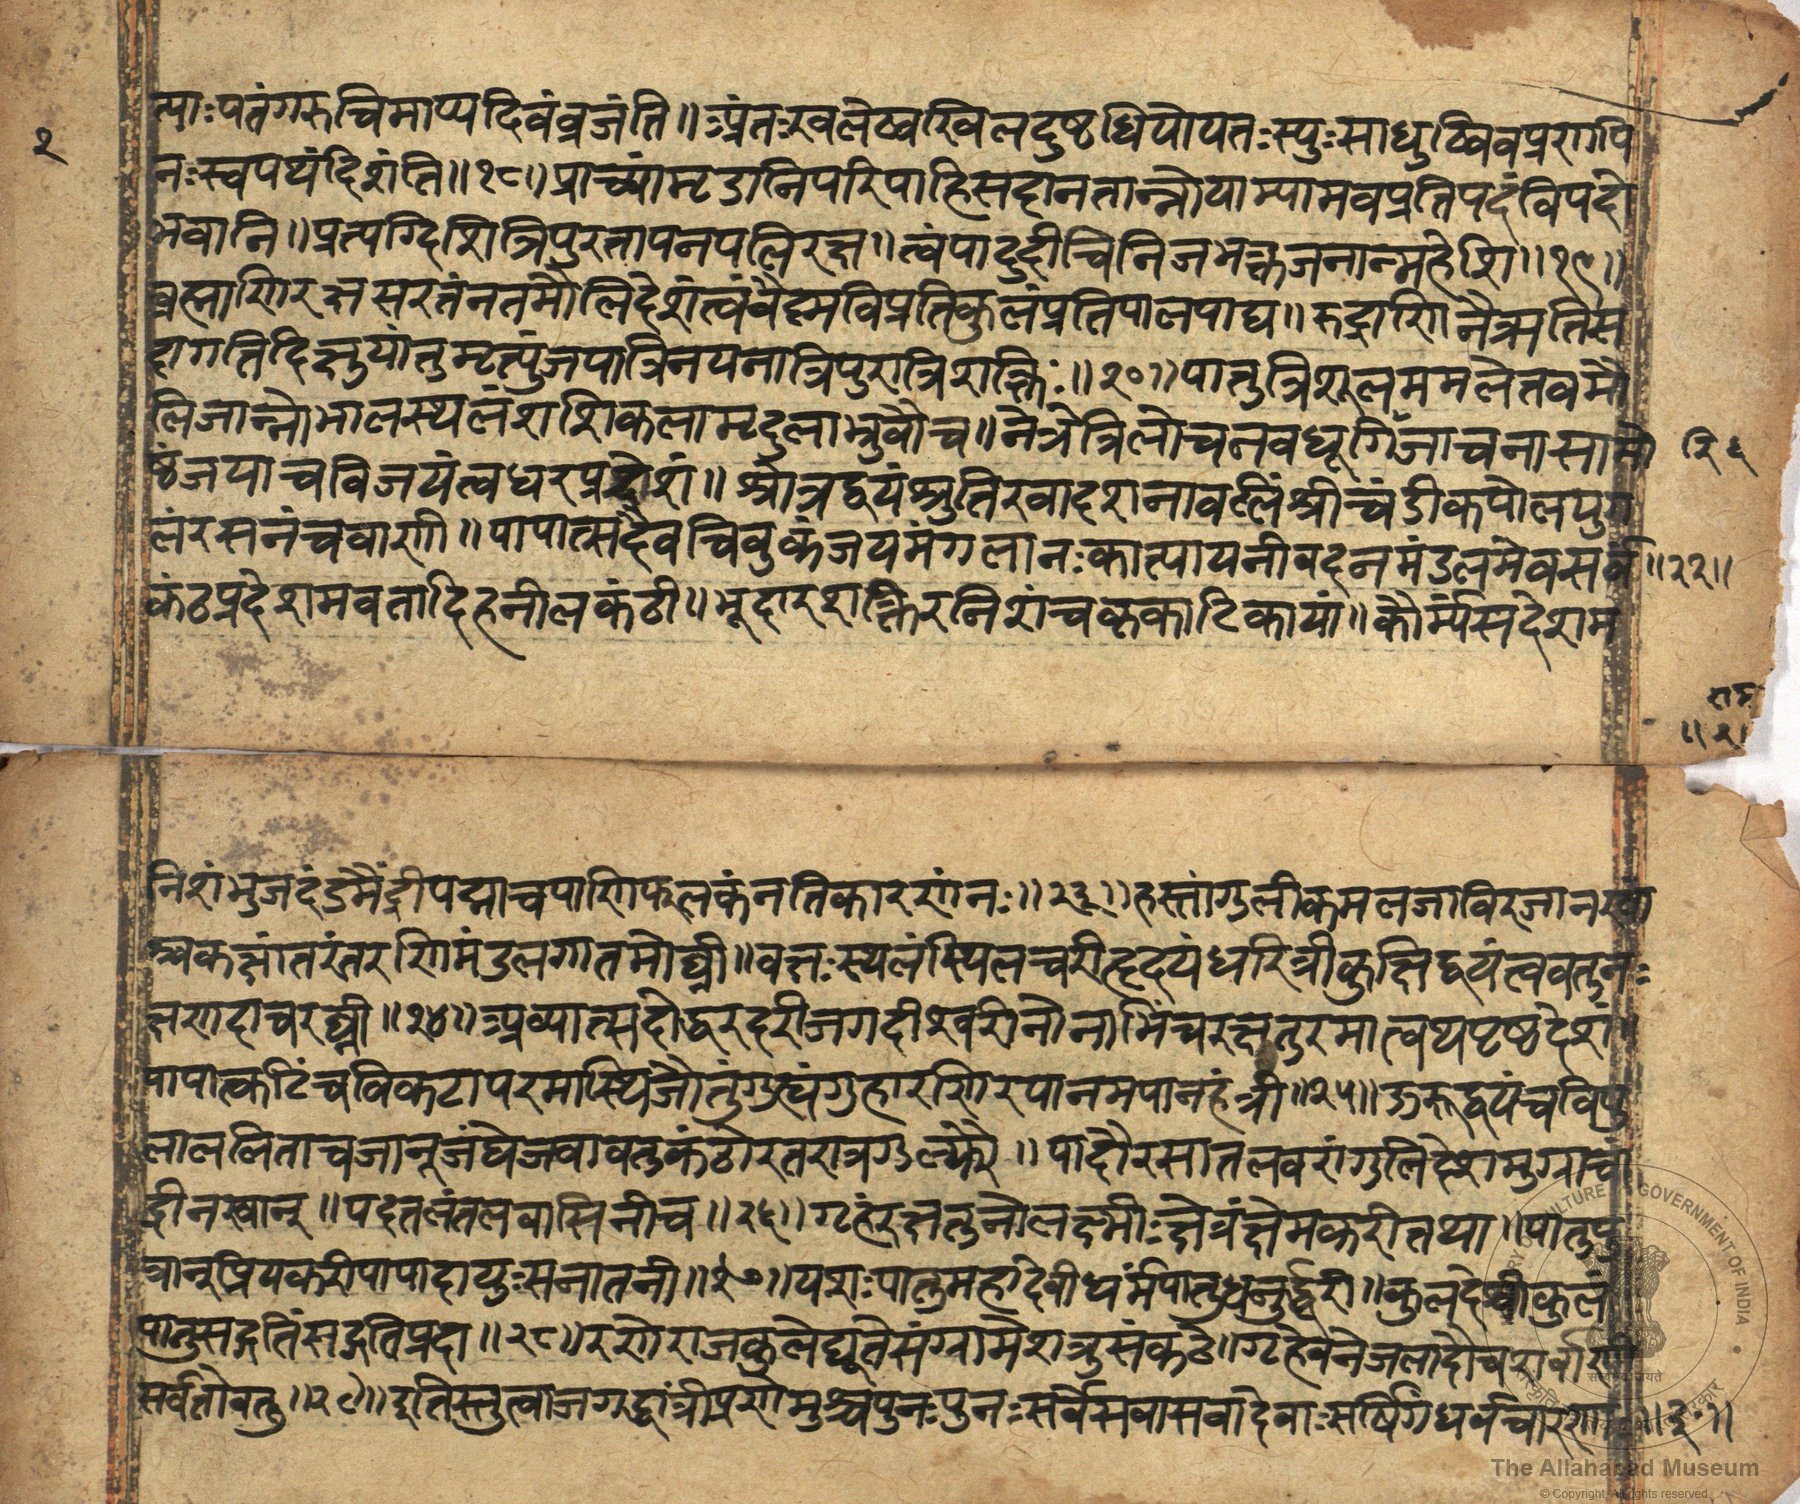 २
त्याः पतंगरुचिमाप्य दिवं व्रजंति ॥ अंतः खलेष्वखिलदुष्टधियो यतः स्युः साधुष्विव प्रणयि
नः स्वपथं दिशंति ॥१८॥ प्राच्यां मृडानि परिपाहि सदा नतान्नो याम्यामव प्रतिपदं विपदो
भवानि ॥ प्रत्यग्दिशि त्रिपुरतापनपत्नि रक्ष ॥ त्वं पाद्युदीचि निजभक्तजनान्महेशि ॥१९॥
ब्रह्माणि रक्ष सततं नतमौलिदेशं त्वं वैष्णवि प्रतिकुलं प्रतिपालयाधः ॥ रुद्राणि नैरृति स
दागतिदिक्षु यांतु मृत्युंजया त्रिनयना त्रिपुरा त्रिशक्तिः ॥२०॥ पातु त्रिशूलममले तव मौ
लिजान्नो भालस्थलं शशिकलामृदुला भ्रुवौ च ॥ नेत्रे त्रिलोचनवधूर्गिरिजा च नासामो
रि ६
ष्ठं जया च विजया त्वधरप्रदेशं ॥ श्रोत्रद्वयं श्रुतिरवा दशनावलिं श्रीश्चंडी कपोलयुग
लं रसनं च वाणी ॥ पायात्सदैव चिबुकं जयमंगला नः कात्यायनी वदनमंडलमेव सर्वं ॥२२॥
कंठप्रदेशमवतादिह नीलकंठी ॥ भूदारशक्तिरनिशं च कृकाटिकायां ॥ कौर्म्यंसदेशम
राम
॥२॥
निशं भुजदंडमैंद्री पद्मा च पाणिफलकं नतिकारणं नः ॥२३॥ हस्तांगुली कमलजा विरजा नखां
श्च कक्षांतरं तरणिमंडलगा तमोघ्नी ॥ वक्षः स्थलं स्थलचरी हृदयं धरित्री कुक्षिद्वयं त्ववतु नः
क्षणदाचरघ्नी ॥२४॥ अव्यात्सदोदरदरी जगदीश्वरी नो नाभिं च रक्षतु रमा त्वथ पृष्ठदेशं ॥
पायात्कटिं च विकटा परमास्फिजौ तु गुह्यं गुहारणिरपानमपानहंत्री ॥२५॥ ऊरुद्वयं च विपु
ला ललिता च जानू जंघे जवावतु कंठोरतरात्र गुल्फौ ॥ पादौ रसातलचरांगुलिदेशमुग्रा चां
द्री नखान् ॥ पदतलं तलवासिनी च ॥२६॥ गृहं रक्षतु नो लक्ष्मीः क्षेत्रं क्षेमकरी तथा ॥ पातु पु
त्रान् प्रियकरी पायादायुः सनातनी ॥२७॥ यशः पातु महादेवी धर्मं पातु धनुर्द्धरी ॥ कुलदेवी कुलं
पातु सद्गतिं सद्गतिप्रदा ॥२८॥ रणे राजकुले द्यूते संग्रामे शत्रुसंकटे ॥ गृहे वने जलादौ च शर्वाणी
सर्वतोवतु ॥२९॥ इति स्तुत्वा जगद्धात्रीं प्रणेमुश्च पुनः पुनः सर्वे सवासवा देवाः सर्षिगंधर्वचारणाः ॥३०॥
MINISTRY OF CULTURE GOVERNMENT OF INDIA
The Allahabad Museum
© Copyright, All rights reserved.